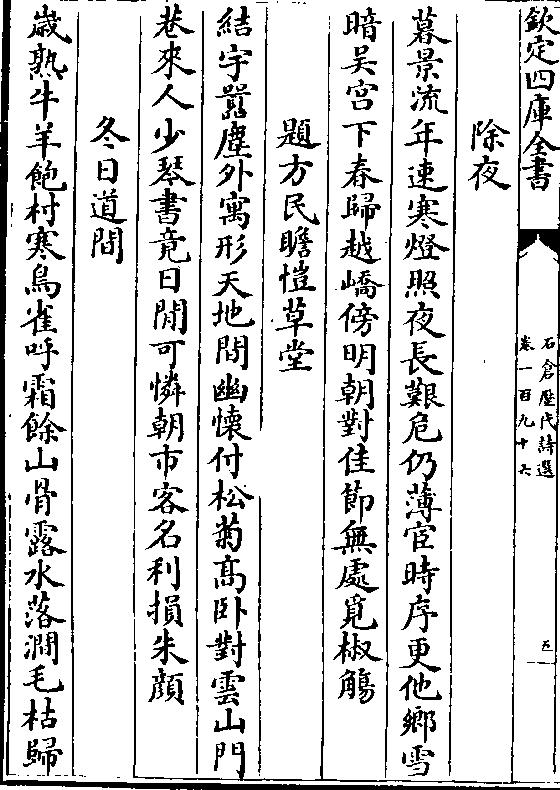 欽定四庫全書
石倉歷代詩選
卷一百九十六
五
除夜
暮景流年速寒燈照夜長艱危仍薄宦時序更他鄉雪
暗吴宫下春歸越嶠傍明朝對佳節無處覓椒觴
題方民瞻愷草堂
結宇囂塵外寓形天地間幽懷付松菊髙卧對雲山門
巷來人少琴書竟日閒可憐朝市客名利損朱顔
冬日道間
歲熟牛羊飽村寒鳥雀呼霜餘山骨露水落澗毛枯歸